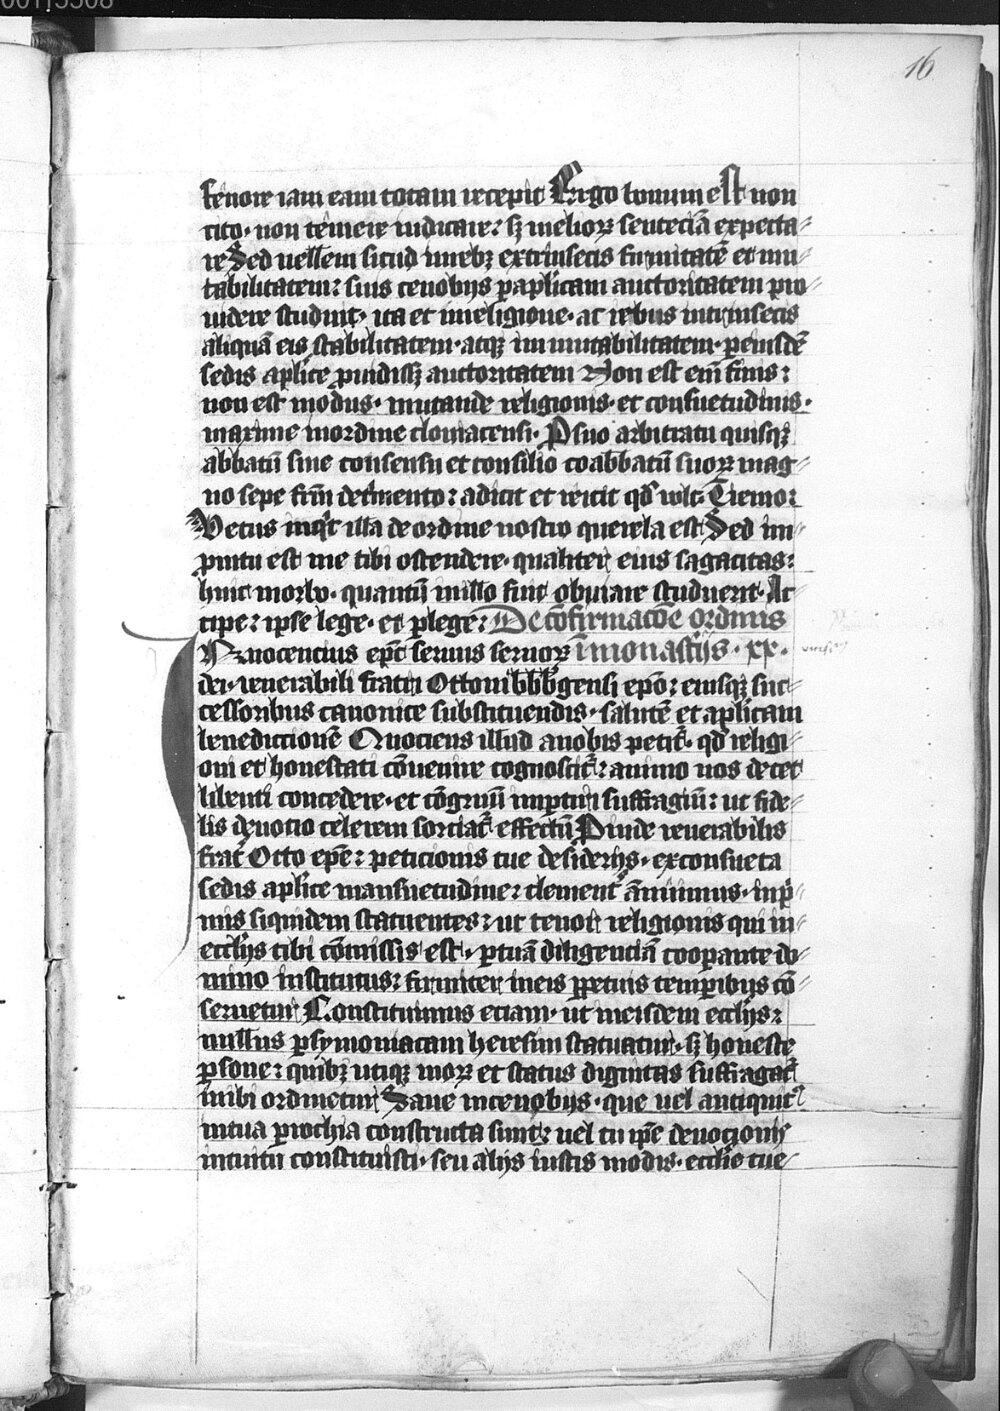 00115308
16
fenore iam eam totam recepit Ergo bonum est non
cito· non temere iudicare: sꝫ melioꝝ sentēciā expecta-
re Sed vellem sicud in rebꝫ extrinsecis firmitatē et mu-
tabilitatem: suis cenobijs ꝑ aplicam auctoritatem pro-
videre studuit· ita et in religione· ac rebus intrinsecis
aliquā eis stabilitatem· atqꝫ immutabilitatem· ꝑ eiusdē
sedis aplice ꝓuidissꝫ auctoritatem Non est em̄ finis:
non est modus· mutande religionis· et consuetudinis·
maxime in ordine cloniacensi· P suo arbitratu quisqꝫ
abbatū sine consensu et consilio coabbatū suoꝝ mag-
no sepe frm̄ detrimento: adicit et reicit qd̄ vult Tiemo:
Vetus inqͥt illa de ordine nostro querela est Sed im-
ꝓmtu est me tibi ostendere· qualiter eius sagacitas:
huic morbo· quantū in illo fuit obuiare studuerit· Ac-
cipe: ipse lege· et ꝑlege: De cōfirmacōe ordinis
Innocencius epc̄ seruus seruoꝝ in monastijs· xx·
dei· venerabili fratri Ottoni bbb̄gensi epō: eiusqꝫ suc-
cessoribus canonice substituendis· salutē et aplicam
benedictionē Quociens illud a nobis petit̄· qd̄ religi-
oni et honestati cōuenire cognoscit̄: animo nos decet
libenti concedere· et cōgruū imꝑtiri suffragiū: ut fide-
lis deuocio celerem sorciat̄ effectū Pinde venerabilis
frat̄ Otto epē: peticionis tue desiderijs· ex consueta
sedis aplice mansuetudine: clement̄ ānuimus· inp̄-
mis siquidem statuentes: ut tenor religionis qui in
ecclijs tibi cōmissis est· ꝑ tuā diligenciā cooꝑante do-
mino institutus: firmiter in eis ꝑpetuis temꝑibus cō-
seruetur Constituimus eciam· ut in eisdem ecclijs:
nullus ꝑ symoniacam heresim statuatur· sꝫ honeste
ꝑsone: quibꝫ utiqꝫ moꝝ et status dignitas suffragat̄
inibi ordinetur Sane in cenobijs· que vel antiquit̄
in tua ꝑrochia constructa sunt: vel tu ipē deuocionis
intuitu constituisti· seu alijs iustis modis· ecclie tue